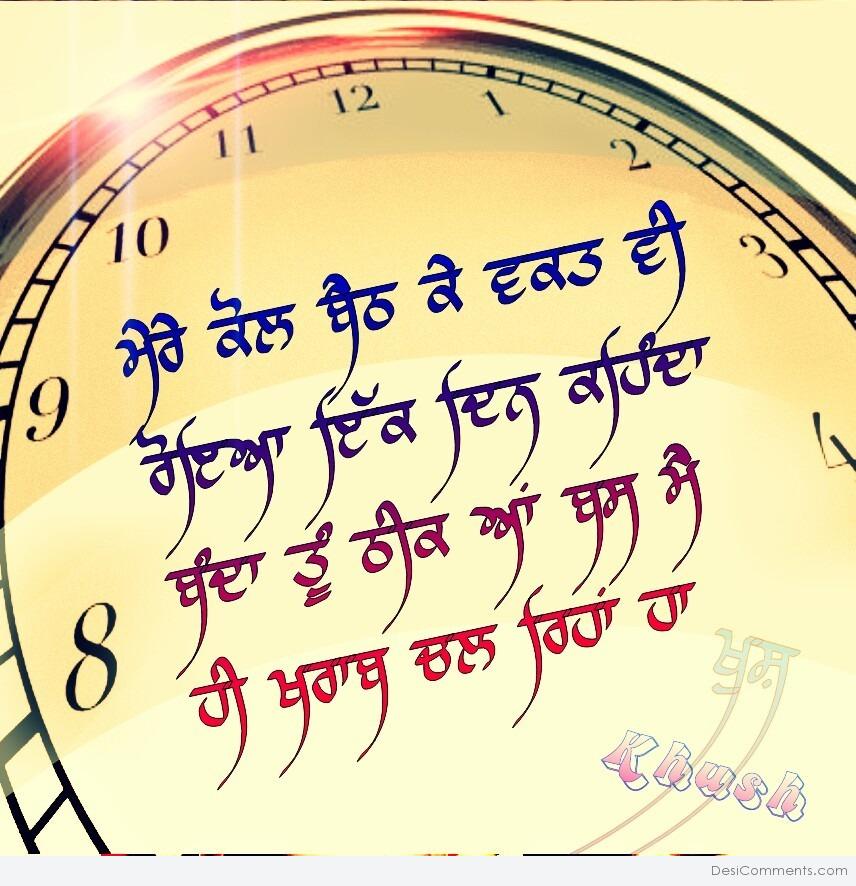 12
1
11
2
10
3
9
4
8
ਮੇਰੇ ਕੋਲ ਬੈਠ ਕੇ ਵਕਤ ਵੀ
ਰੋਇਆ ਇੱਕ ਦਿਨ ਕਹਿੰਦਾ
ਬੰਦਾ ਤੂੰ ਠੀਕ ਆਂ ਬਸ ਮੈ
ਹੀ ਖਰਾਬ ਚਲ ਰਿਹਾਂ ਹਾ
ਖੁਸ਼
Khush
DesiComments.com